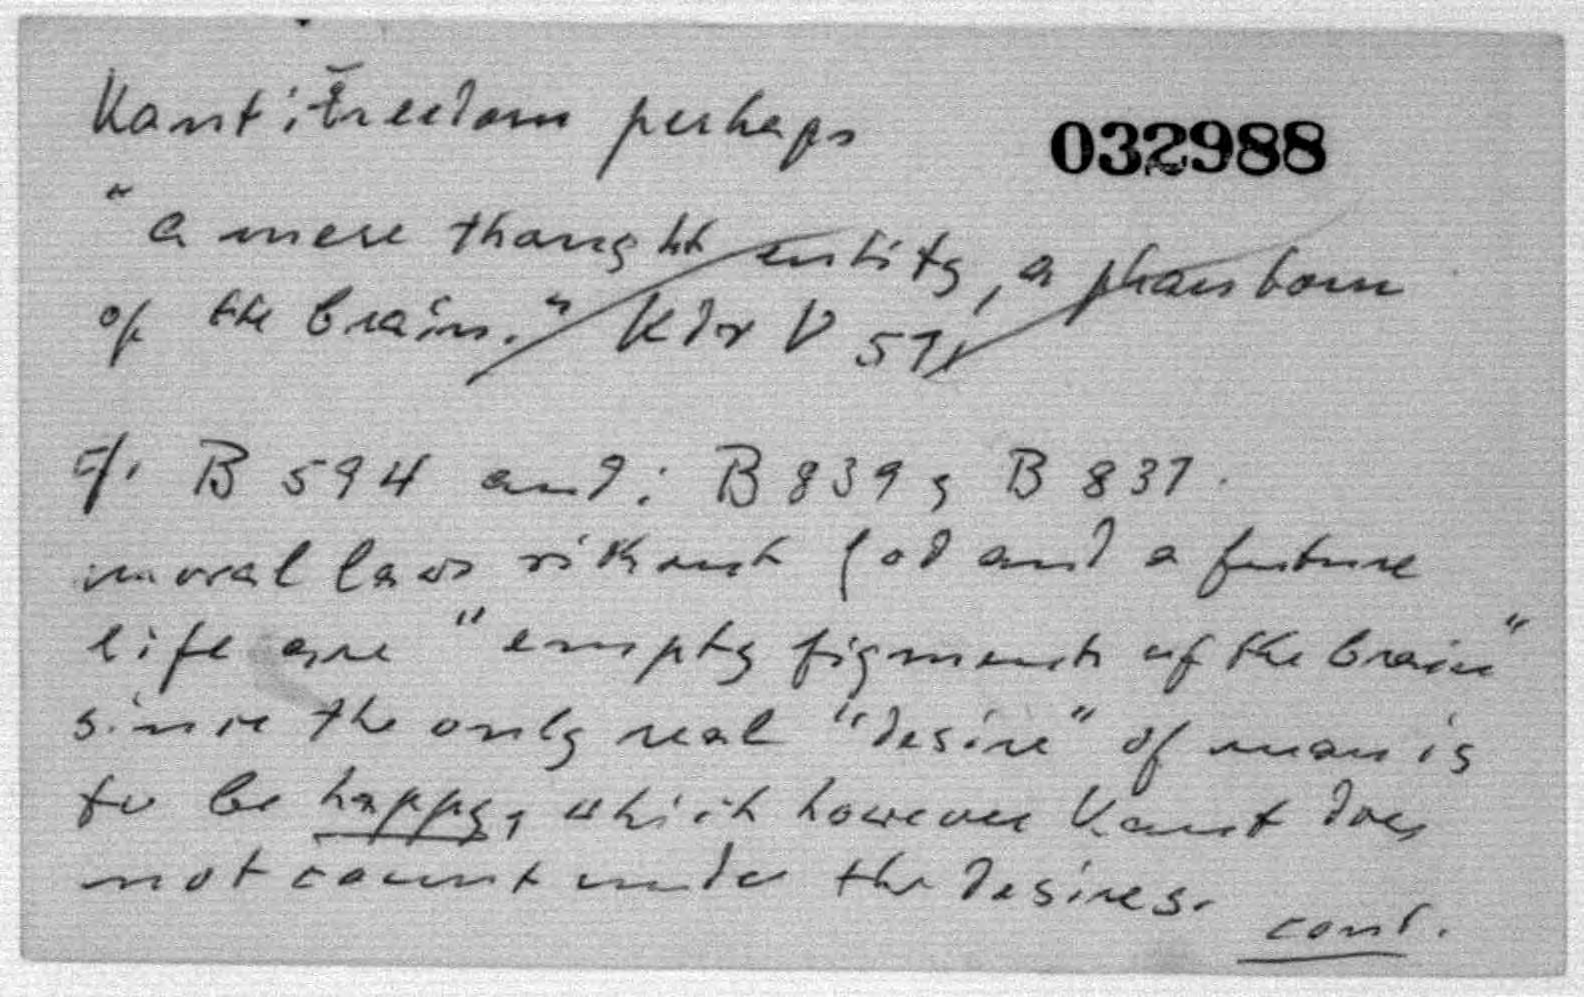 Kant: Freedom perhaps
032988
"a mere thought entity, a phantom
of the brain." KdrV 571
cf. B 594 and: B 839; B 837.
moral laws without God and a future
life are "empty figments of the brain"
since the only real "desire" of man is
to be happy, which however Kant does
not count under the desires. cont.